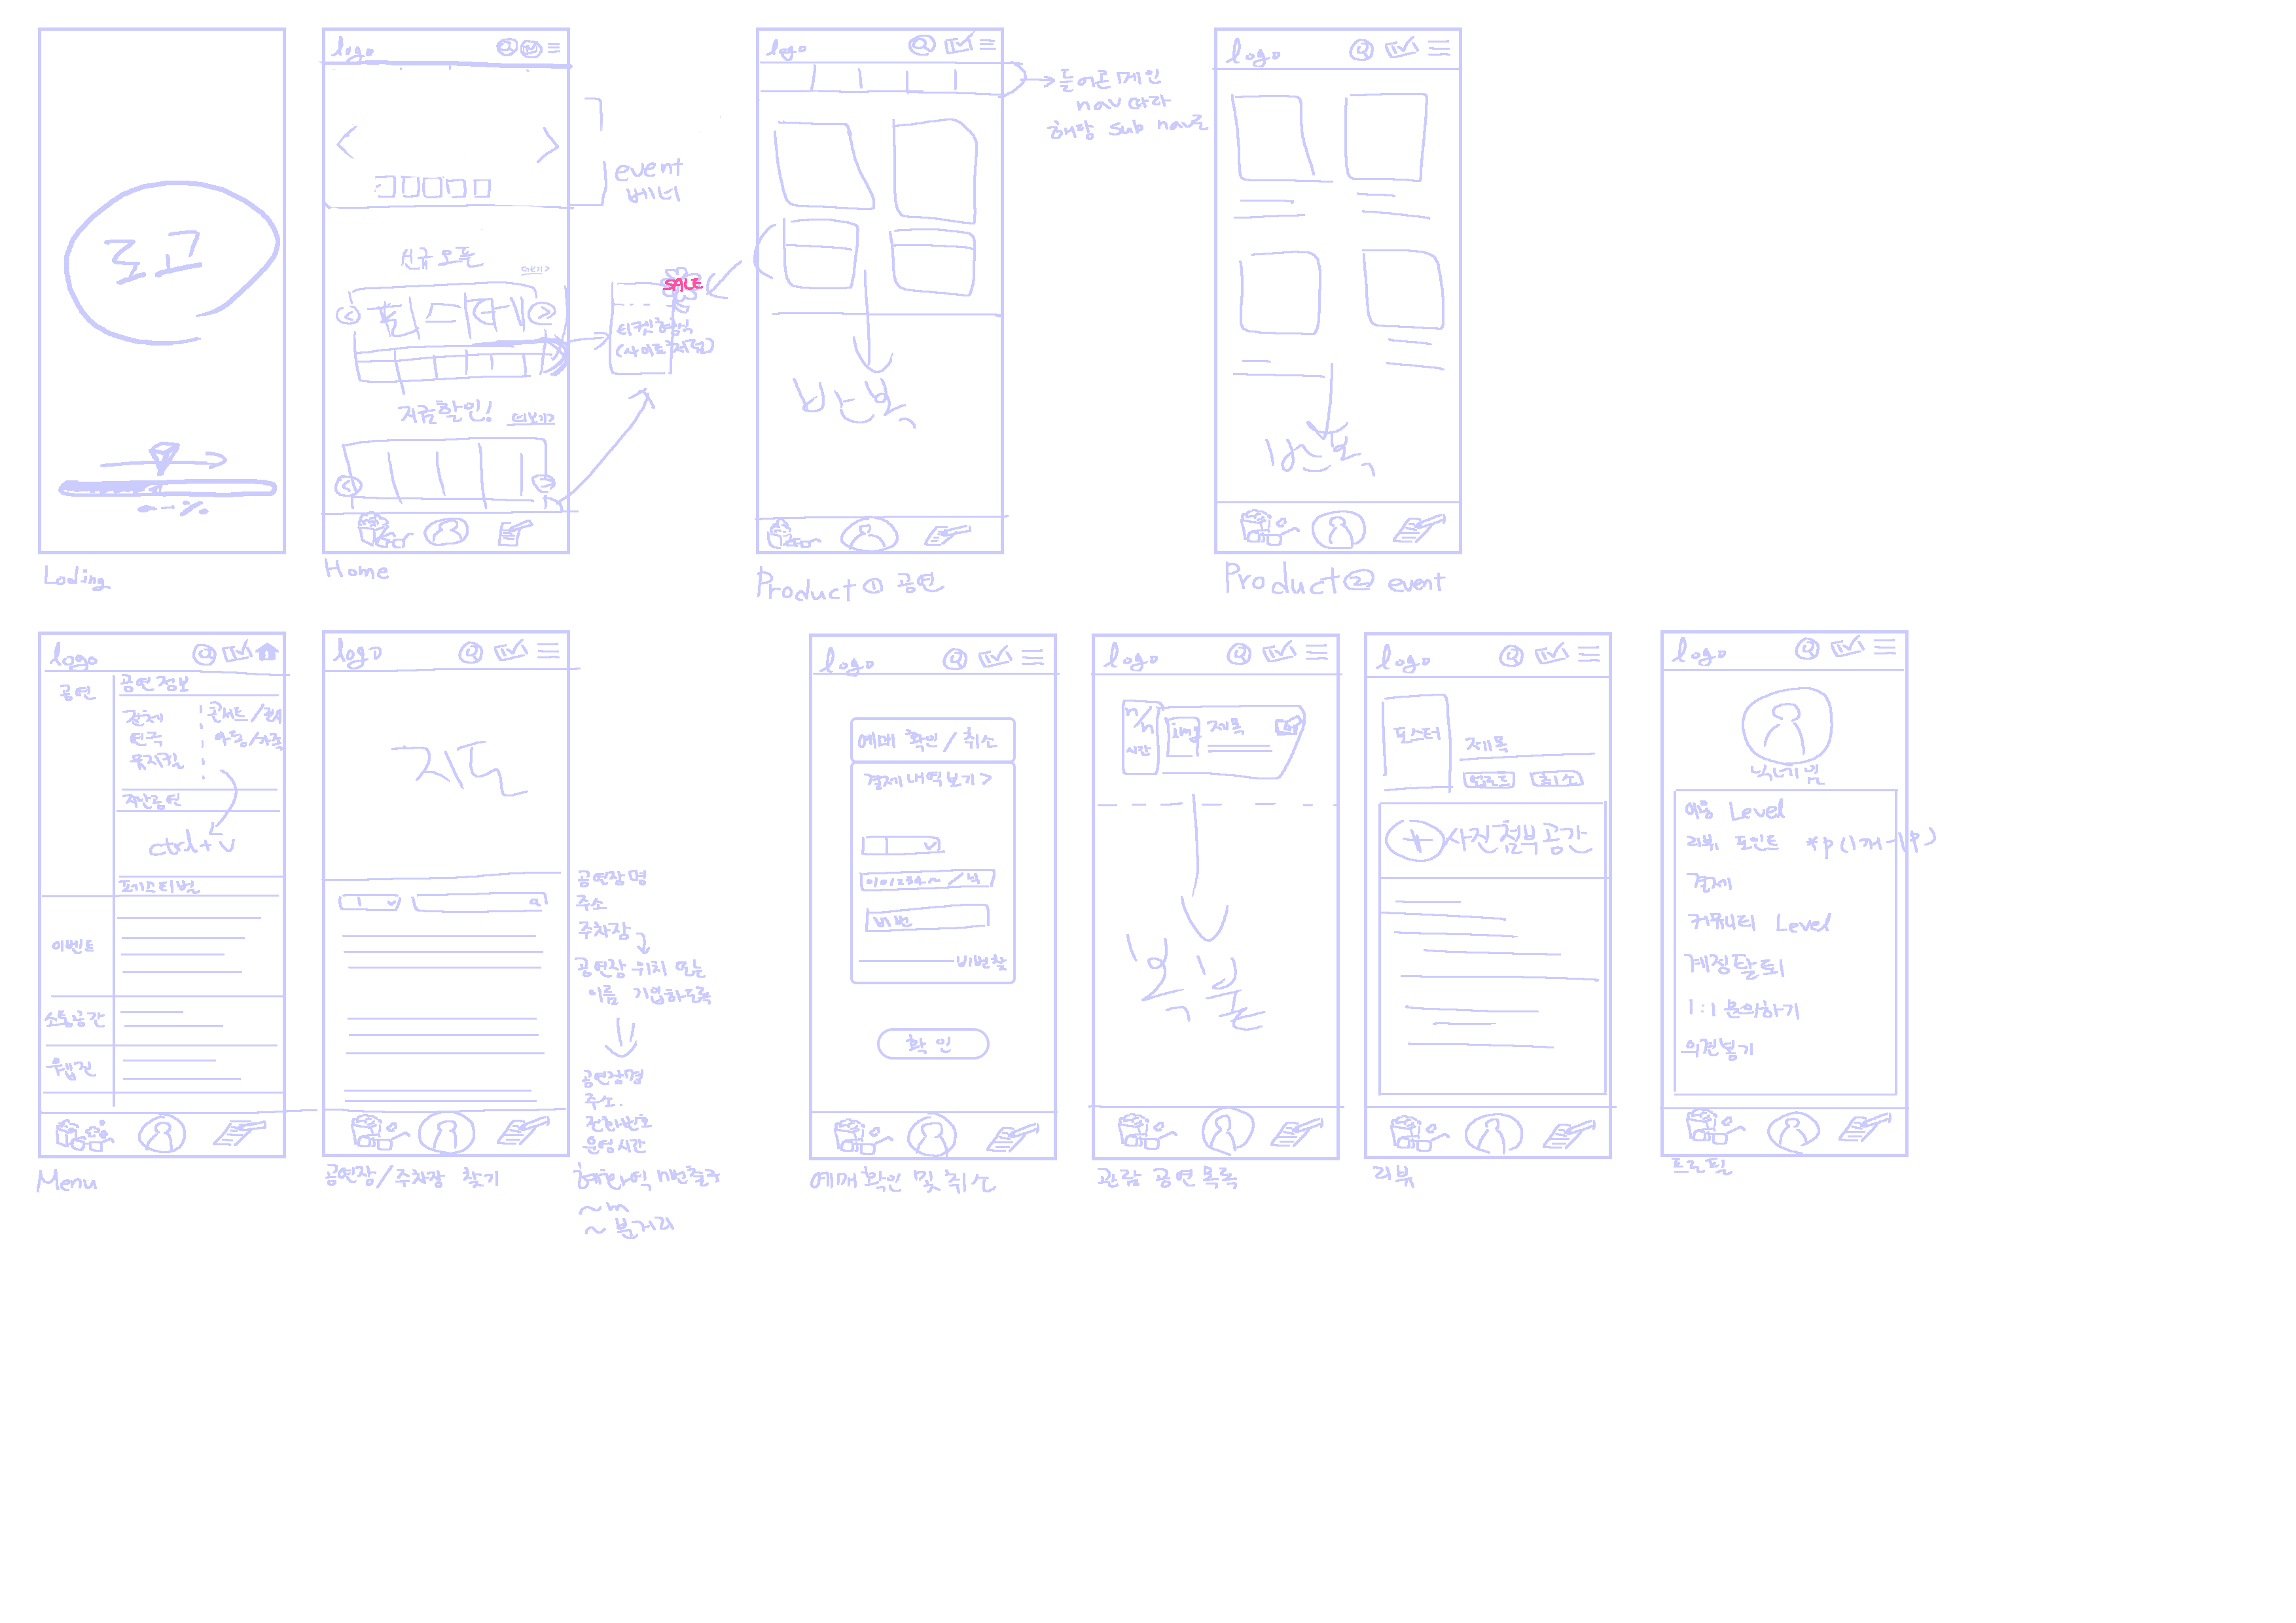 로고
Loding
logo
event
베너
신규오픈
더보기>
포스터
지금할인!
더보기>
Home
SALE
티켓형식
(사이트처럼)
logo
들어온 메인
nav 따라
해당 sub nav로
반복
Product① 공연
logo
반복
Product② event
logo
공연
공연정보
전체
연극
뮤지컬
콘서트/전시
아동/가족
지난공연
ctrl+v
페스티벌
이벤트
소통공간
웹진
Menu
logo
지도
공연장/주차장 찾기
공연장명
주소
주차장
공연장 위치 또는
이름 기입하도록
공연장명
주소.
전화번호
운영시간
~m
~분거리
logo
예매 확인/취소
결제내역보기>
비번
비번찾
확인
예매확인 및 취소
logo
n/n
시간
img
제목
관람 공연 목록
logo
포스터
제목
업로드
취소
+ 사진첨부공간
리뷰
logo
닉네임
이용 Level
리뷰 포인트 *p(1개-1p)
결제
커뮤니티 Level
계정탈퇴
1:1 문의하기
의견봉기
프로필